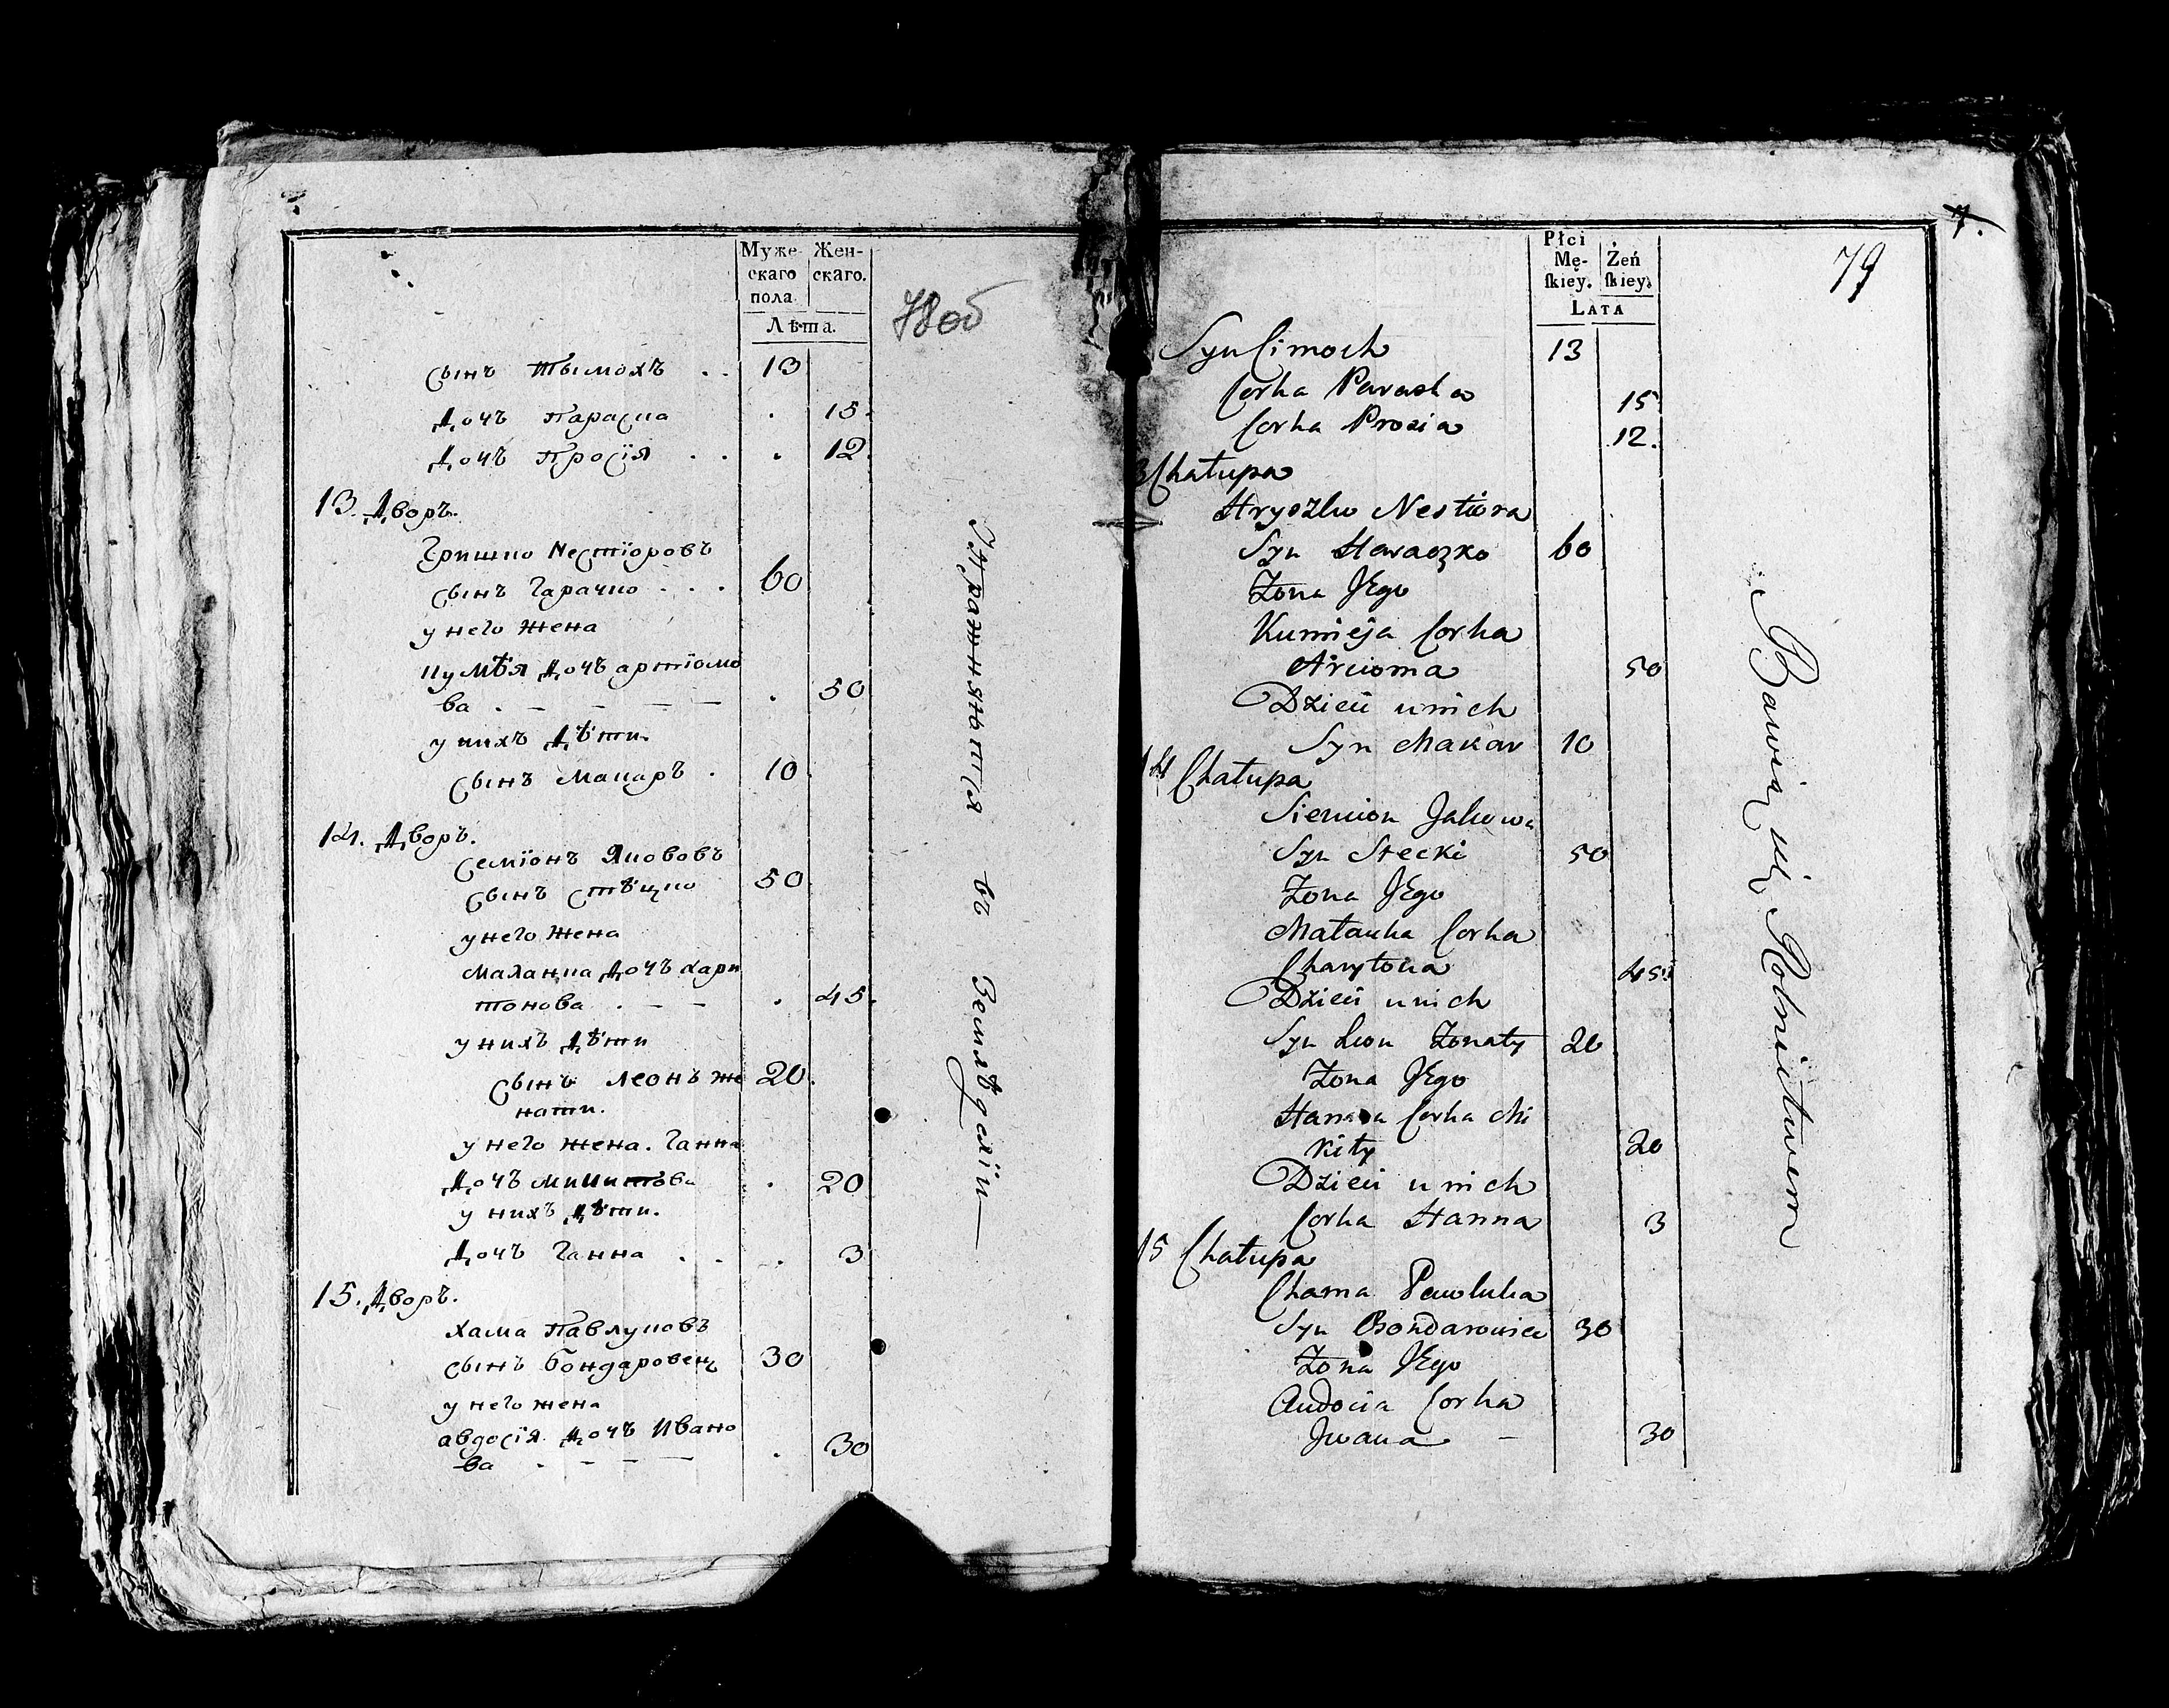 Муже-
скаго
пола.
Жен-
скаго.
Лѣта.
78об
сынъ тымохъ . . 13
дочъ параска . 15.
дочъ просїя . . . 12.
13. дворъ.
гришко нестїоровъ
сынъ гарачко . . . 60
у него жена
кумѣя дочъ артїомо
ва . - - - - . 50
у нихъ дѣти.
сынъ макаръ . 10
14. дворъ.
семїонъ якововъ
сынъ стѣцко 50
у него жена
маланка дочъ хари
тонова . - - . 45.
у нихъ дѣти
сынъ леонъ же 20.
нати.
у него жена. ганна
дочъ микитова . 20
у нихъ дѣти.
дочъ ганна . . . 3
15. дворъ.
хама павлуковъ
сынъ бондаровец 30
у него жена
авдосїя дочъ ивано
ва . - - - . 30
въ Землѣделїи
7.
79
Płci
Mę-
ſkiey.
Żeń
ſkiey.
LATA
Syn Cimoch 13
Corka Paraska 15
Corka Prosia 12.
3 Chałupa
Hryszko Nestiora
Syn Haraczko 60
Żona Jego
Kumieja Corka
Arcioma 50
Dzieci u nich
Syn Makar 10
14 Chałupa
Siemion Jakowa
Syn Stecki 50
Żona Jego
Małanka Corka
Charytona 45
Dzieci u nich
Syn Leon Żonaty 20
Żona Jego
Hanna Corka Mi
kity 20
Dzieci u nich
Corka Hanna 3
15 Chałupa
Chama Pawluka
Syn Bondarowiec 30
Żona Jego
Audocia Corka
Jwana - 30
Bawią się Rolnictwem